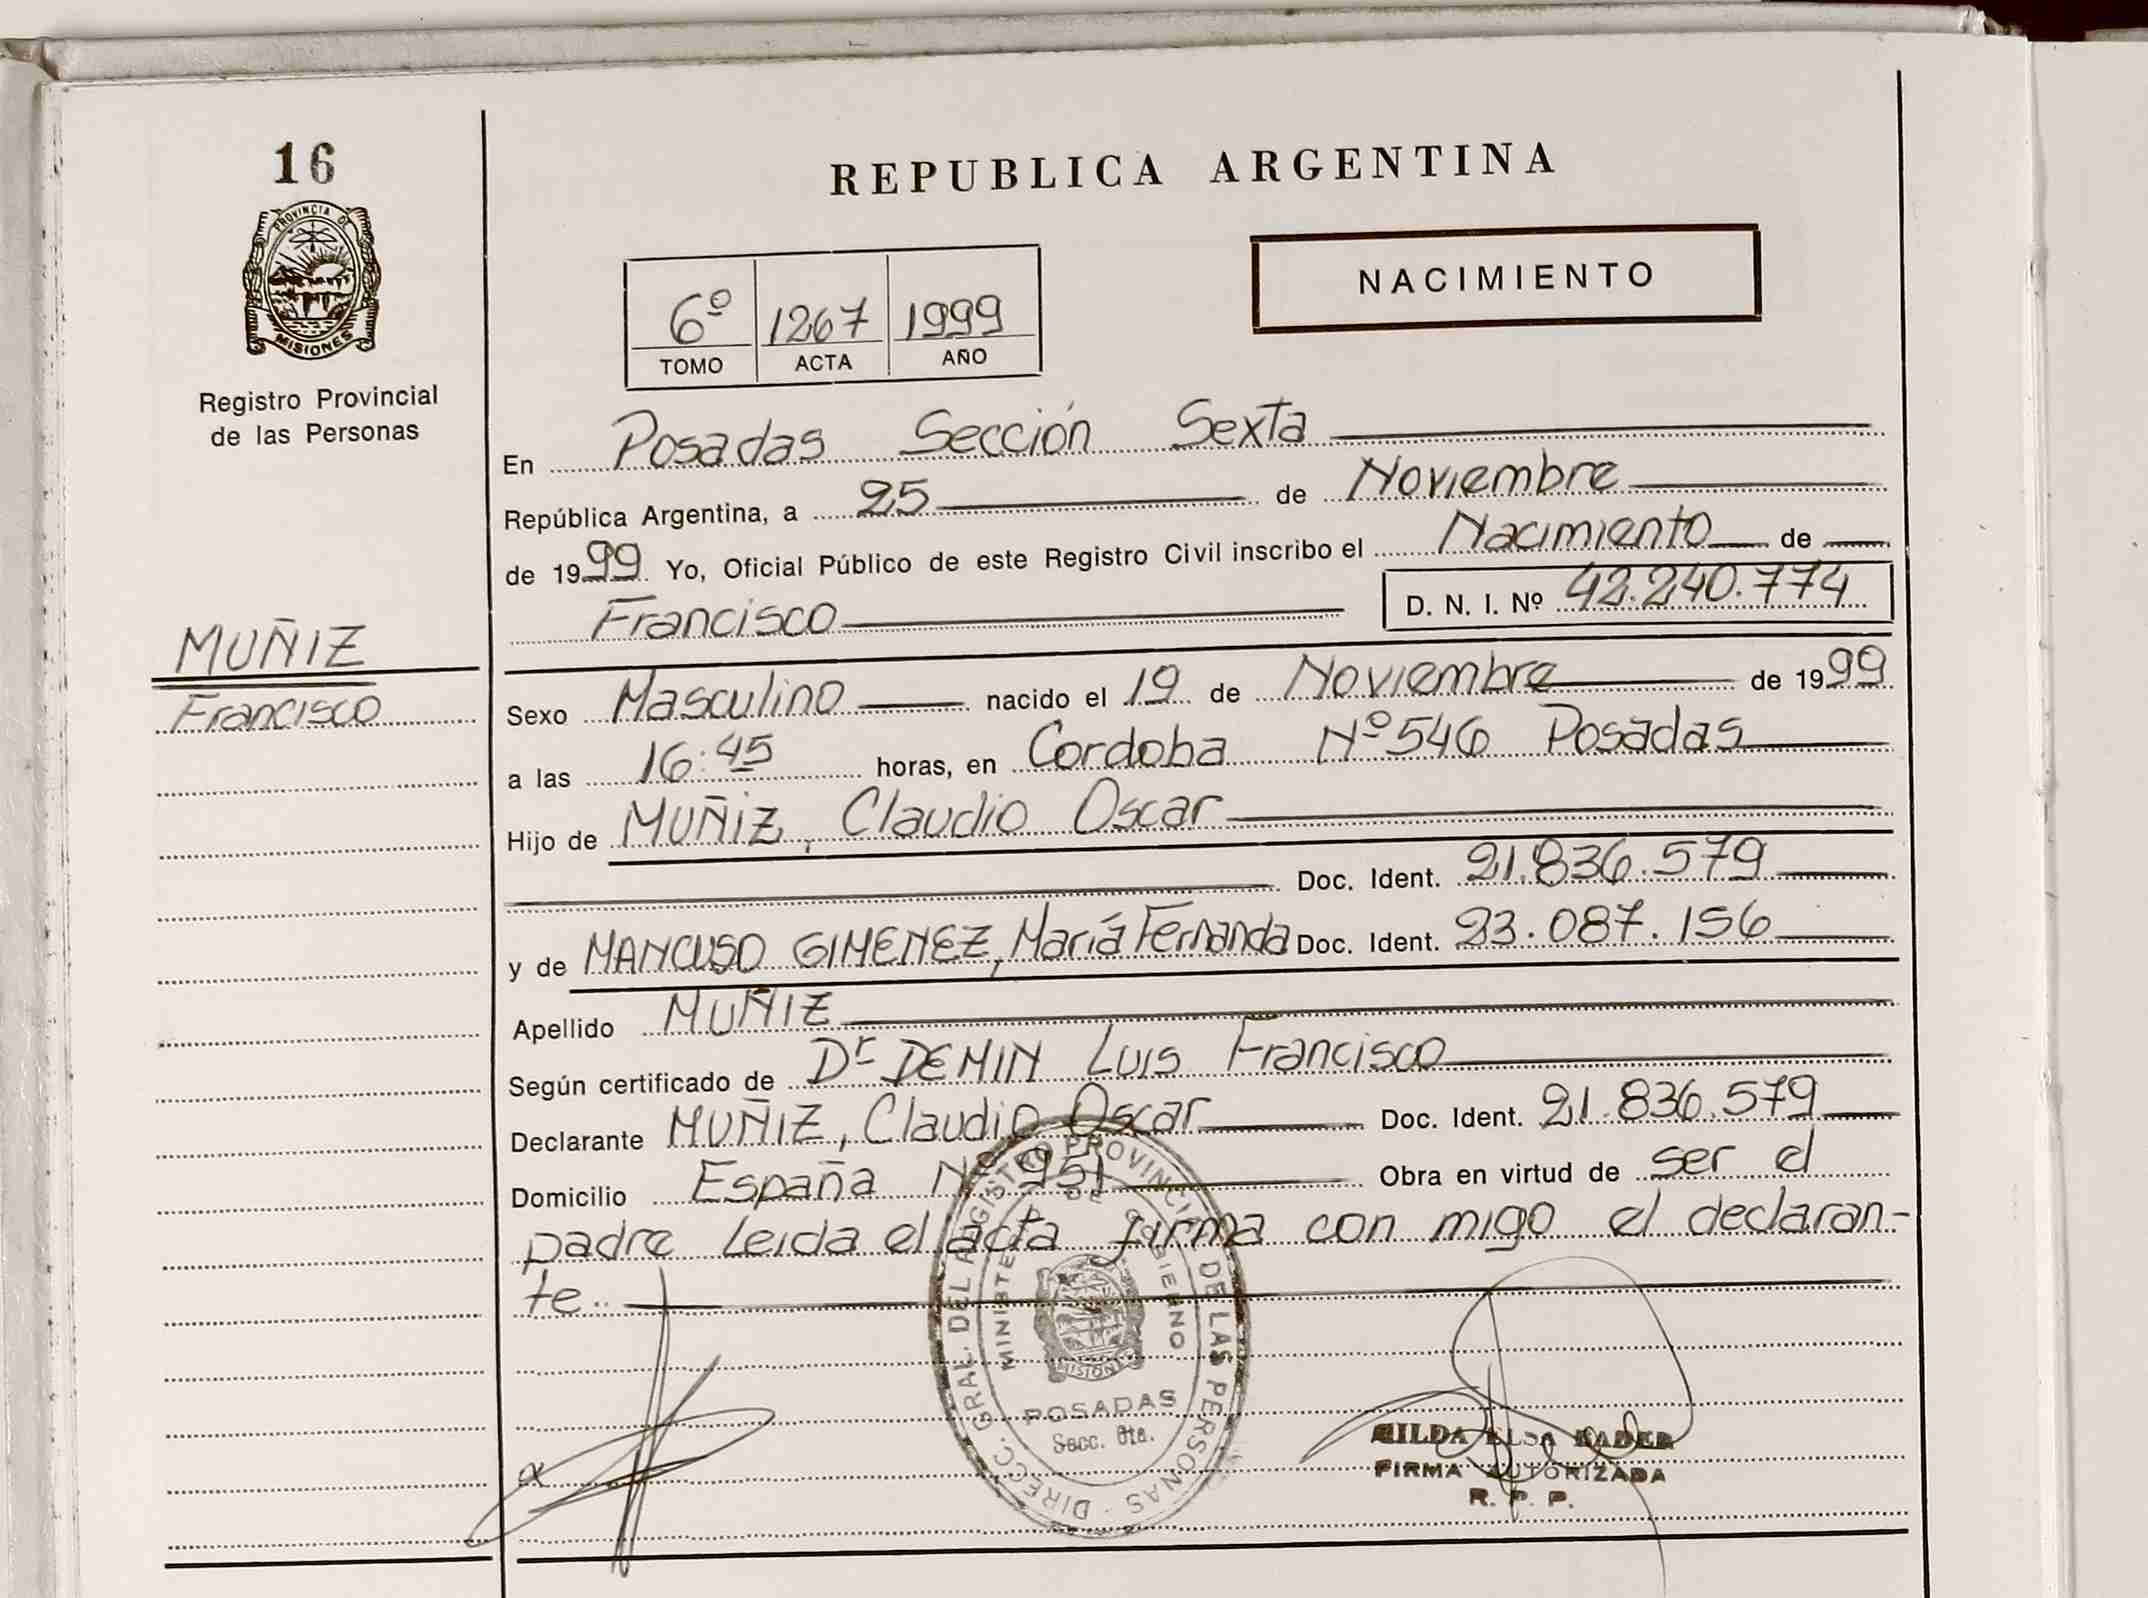 16
PROVINCIA DE
MISIONES
Registro Provincial
de las Personas
MUÑIZ
Francisco
REPUBLICA ARGENTINA
NACIMIENTO
6º 1267 1999
TOMO ACTA AÑO
En Posadas Sección Sexta
República Argentina, a 25 de Noviembre
de 1999 Yo, Oficial Público de este Registro Civil inscribo el Nacimiento de
Francisco D. N. I. Nº 42.240.774
Sexo Masculino nacido el 19 de Noviembre de 1999
a las 16:45 horas, en Cordoba Nº 546 Posadas
Hijo de MUÑIZ, Claudio Oscar
Doc. Ident. 21.836.579
y de MANCUSO GIMENEZ, María Fernanda Doc. Ident. 23.087.156
Apellido MUÑIZ
Según certificado de Dr DEMIN Luis Francisco
Declarante MUÑIZ, Claudio Oscar Doc. Ident. 21.836.579
Domicilio España Nº 951 Obra en virtud de ser el
padre Leida el acta firma con migo el declaran-
te.
DIRECC. GRAL. DEL REGISTRO PROVINCIAL DE LAS PERSONAS
MINISTERIO DE GOBIERNO
MISIONES
POSADAS
Secc. 6ta.
HILDA ELSA KADER
FIRMA AUTORIZADA
R. P. P.